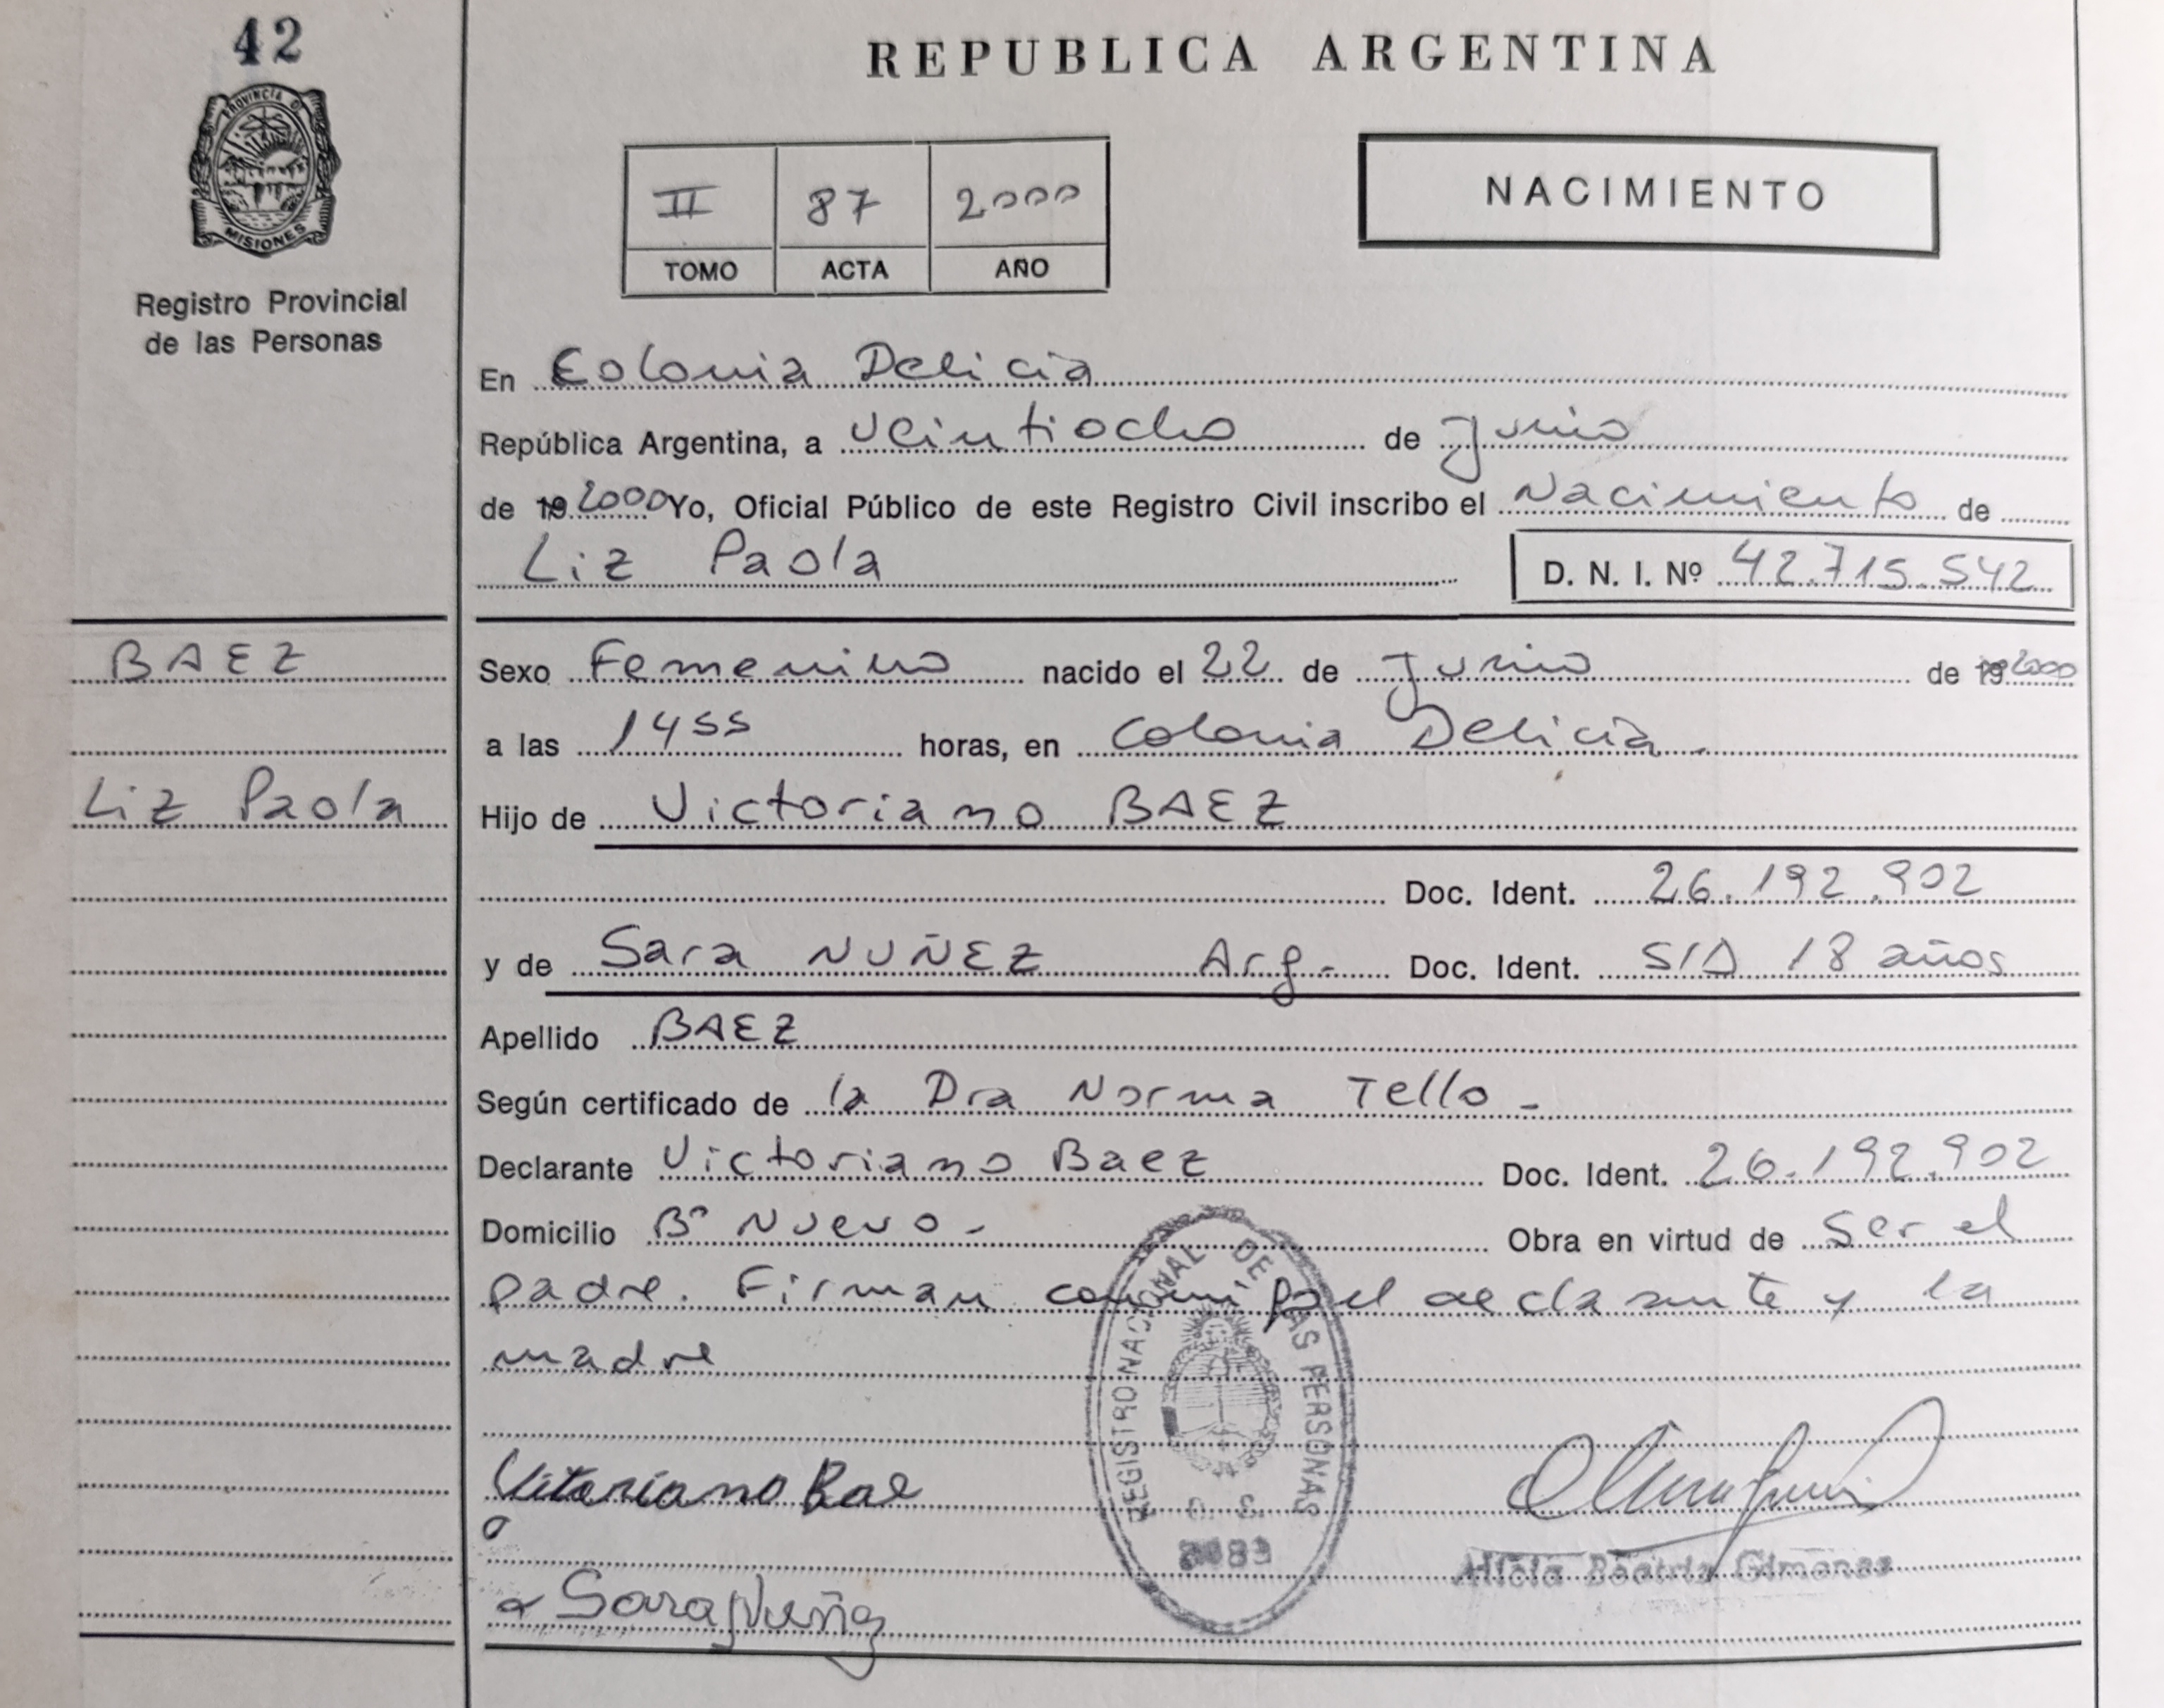 42
PROVINCIA D
MISIONES
Registro Provincial
de las Personas
REPUBLICA ARGENTINA
II 87 2000
TOMO ACTA AÑO
NACIMIENTO
En Colonia Delicia
República Argentina, a veintiocho de Junio
de 19 2000 Yo, Oficial Público de este Registro Civil inscribo el Nacimiento de
Liz Paola D. N. I. Nº 42.715.542
BAEZ
Liz Paola
Sexo Femenino nacido el 22 de Junio de 19 2000
a las 1455 horas, en Colonia Delicia.
Hijo de Victoriano BAEZ
Doc. Ident. 26.192.902
y de Sara NUÑEZ Arg. Doc. Ident. S/D 18 años
Apellido BAEZ
Según certificado de la Dra Norma Tello -
Declarante Victoriano Baez Doc. Ident. 26.192.902
Domicilio Bº Nuevo - Obra en virtud de ser el
padre. Firman conmigo el declarante y la
madre
Vitoriano Bae
Sara Nuñez
REGISTRO NACIONAL DE LAS PERSONAS
Alicia Beatriz Gimenez